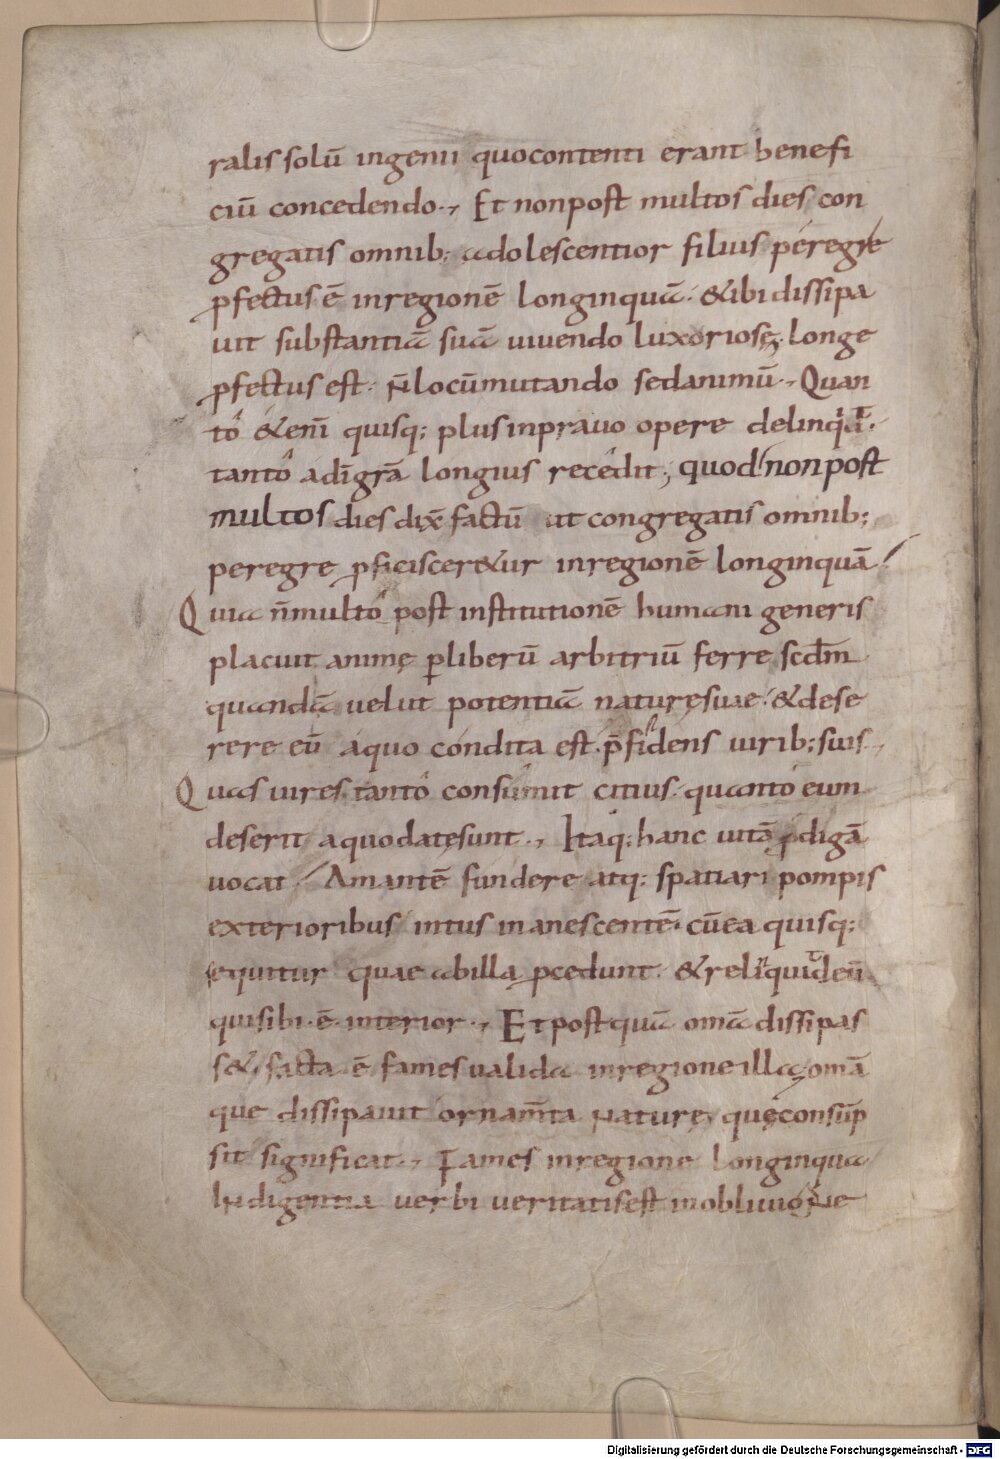 ralis solū ingenii quo contenti erant benefi
ciū concedendo ., Et non post multos dies con
gregatis omnib; adolescentior filius peregre
ꝓfectus ē in regionē longinquā . & ibi dissipa
uit substantiā suā uiuendo luxoriosę . longe
ꝓfectus est . n̄ locū mutando sed animū ., Quan
to &enī quisq; plus in prauo opere delinq̇̄t .
tanto a dī grā longius recedit ; quod non post
multos dies dix̄ factū ut congregatis omnib;
peregre ꝓficiscer&ur in regionē longinquā
Quia n̄ multo post institutionē humani generis
placuit animę ꝑ liberū arbitriū ferre scdm̄
quandā uelut potentiā naturę suae . & dese
rere eū a quo condita est . p̄fidens uirib; suis .,
Quas uires tanto consumit citius . quanto eum
deserit a quo datę sunt ., Itaq; hanc uitā ꝓdigā
uocat / Amantē fundere atq; spatiari pompis
exterioribus intus inanescentē . cū ea quisq;
sequitur quae ab illa ꝓcedunt . & reliquid eū
qui sibi . ē . interior ., Et postquā omā dissipas
s& . facta ē fames ualida in regione illa , omā
que dissipauit ornam̄ta naturę , quę consūp
sit significat ., Fames in regione longinqua
Indigentia uerbi ueritatis est in obliuione